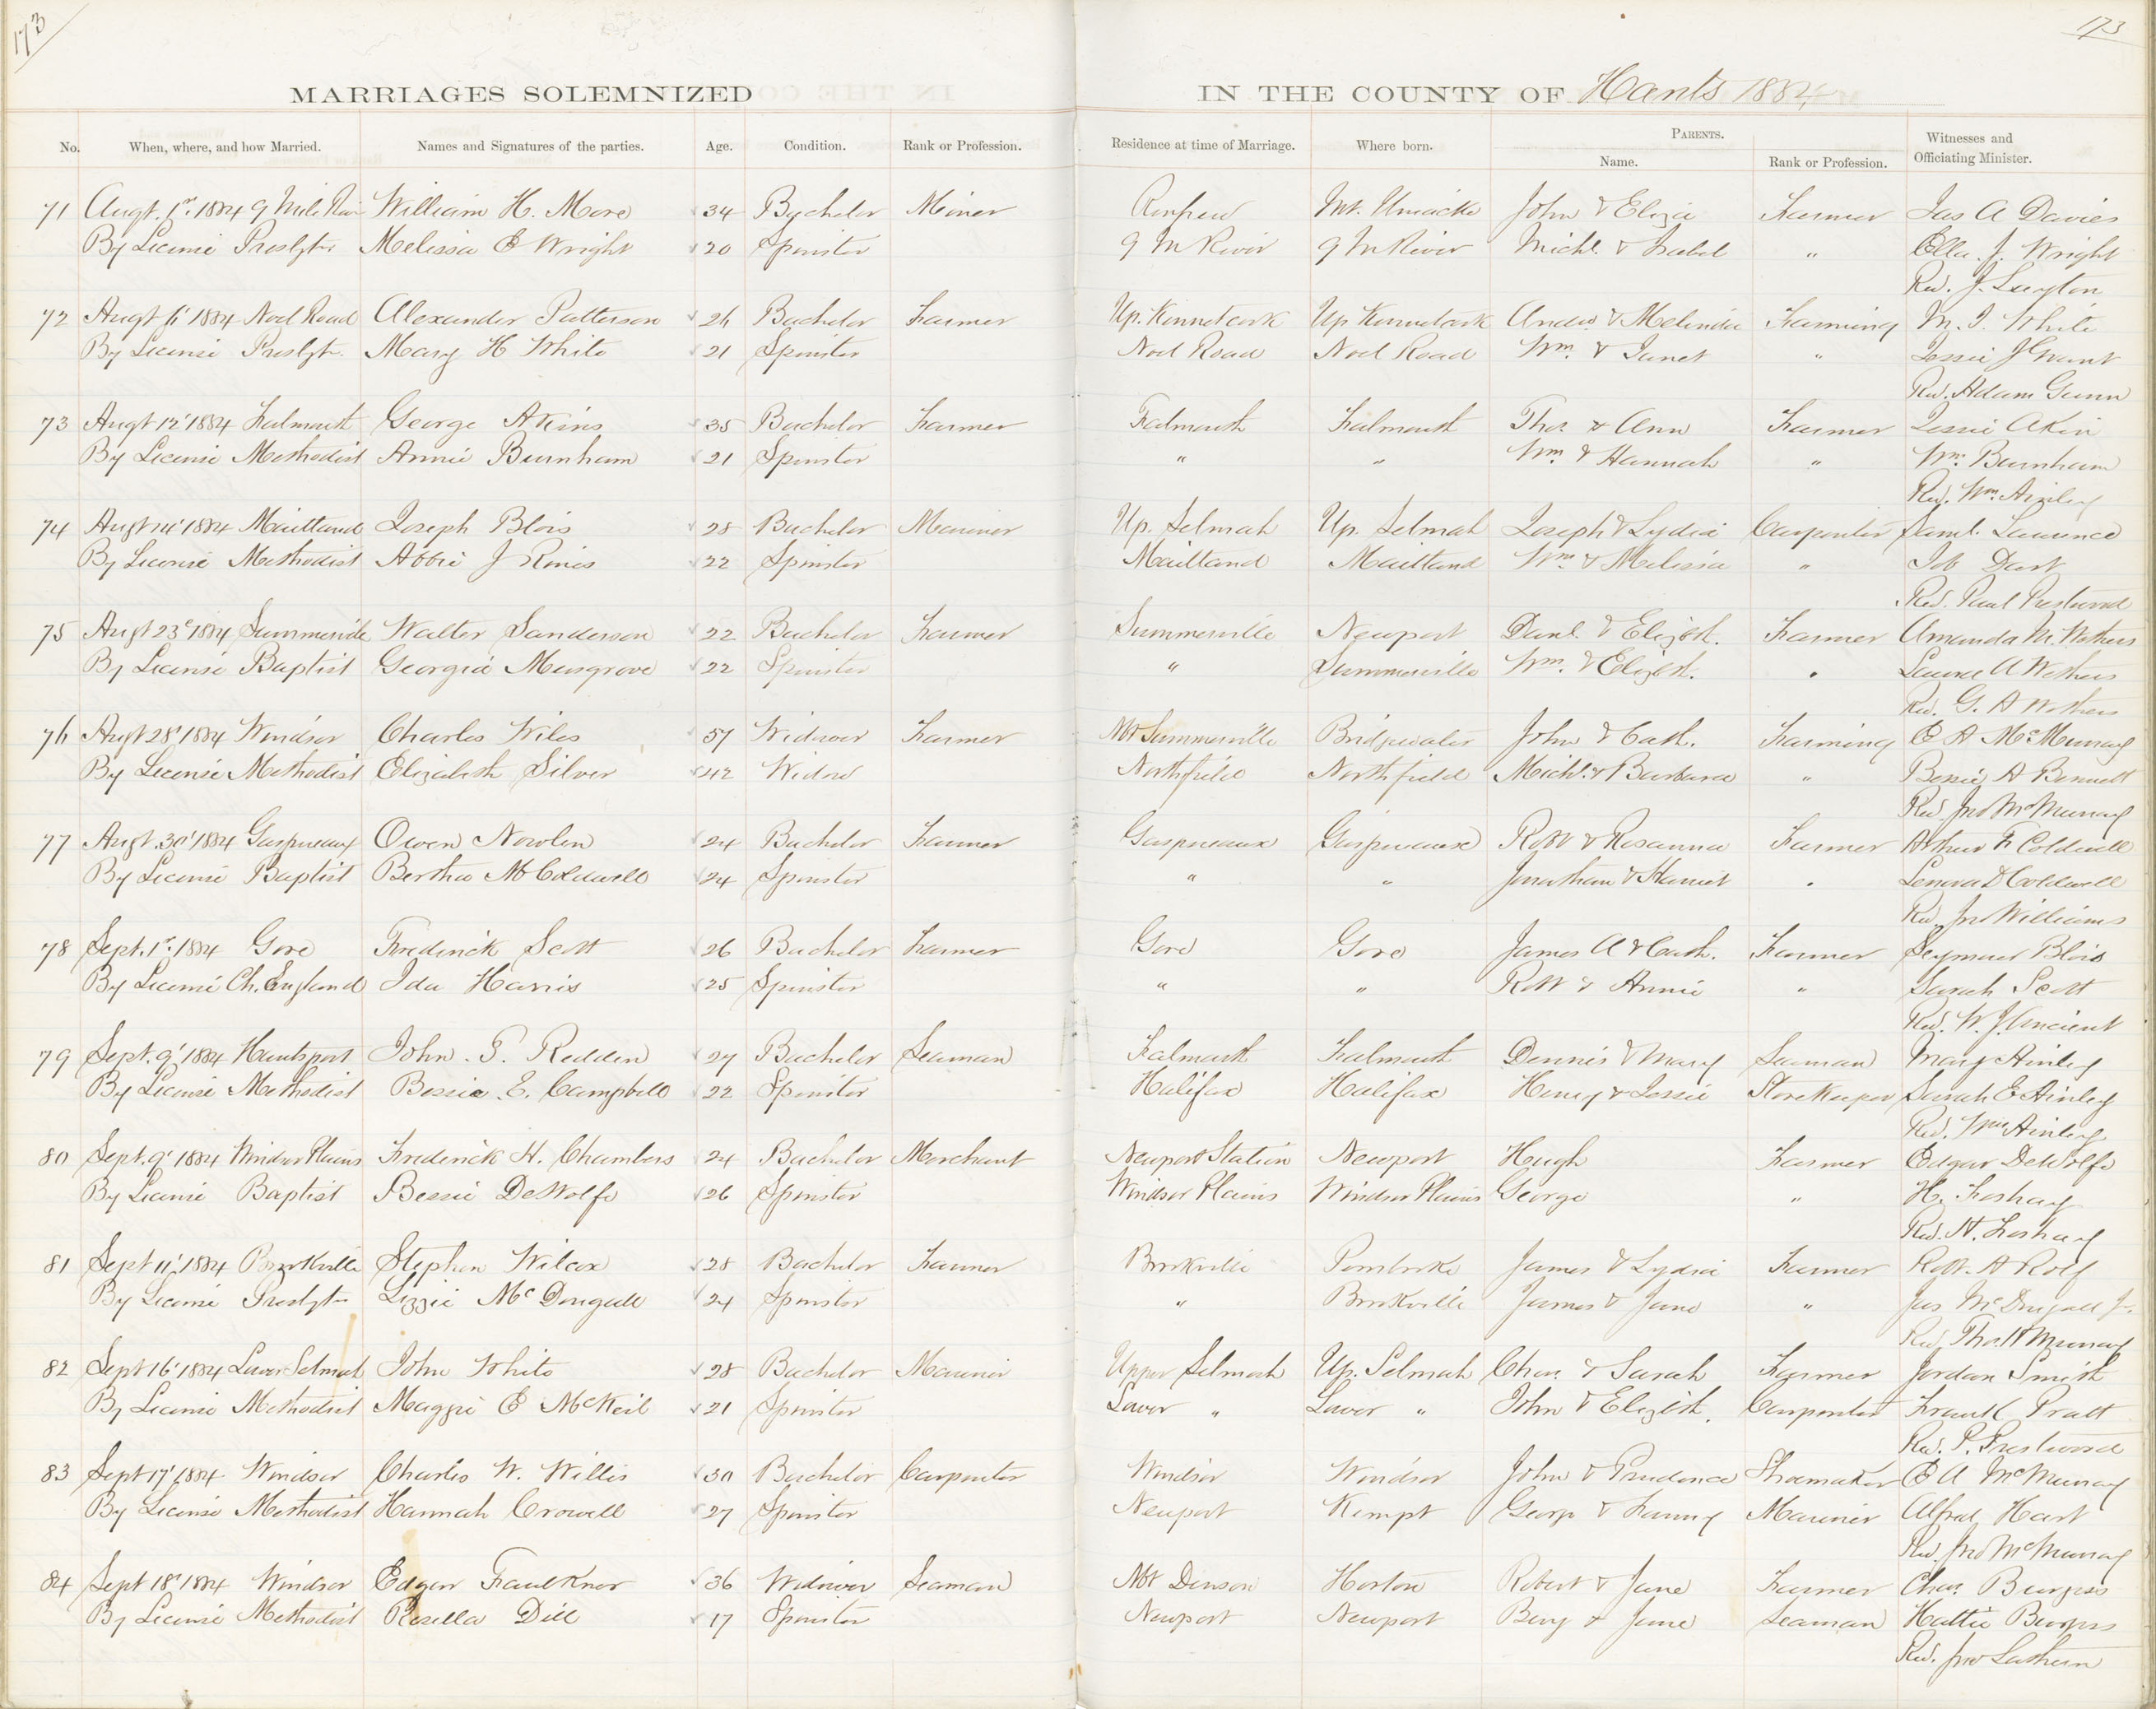 173
173
MARRIAGES SOLEMNIZED IN THE COUNTY OF Hants 1884
No. When, where, and how Married. Names and Signatures of the parties. Age. Condition. Rank or Profession. Residence at time of Marriage. Where born. Parents. Witnesses and Officiating Minister.
Name. Rank or Profession.
71 Augt. 1st. 1884 9 Mile River William H. More 34 Bachelor Miner Renfrew Mt. Uniacke John & Eliza Farmer Jas A Davies
By License Presbytn. Melissa E Wright 20 Spinster 9 M River 9 M River Michl. & Isabel " Ella J. Wright
Rev. J. Layton
72 Augt 6' 1884 Noel Road Alexander Patterson 26 Bachelor Farmer Up. Kennetcook Up Kennetcook Andw. & Melinda Farming M. I. White
By License Presbytn. Mary H White 21 Spinster Noel Road Noel Road Wm. & Janet " Jessie J Grant
Rev. Adam Gunn
73 Augt 12' 1884 Falmouth George Akins 35 Bachelor Farmer Falmouth Falmouth Thos. & Ann Farmer Jessie Akin
By License Methodist Annie Burnham 21 Spinster " " Wm. & Hannah " Wm. Burnham
Rev. Wm. Ainley
74 Augt 14' 1884 Maitland Joseph Blois 28 Bachelor Mariner Up. Selmah Up. Selmah Joseph & Lydia Carpenter Saml. Laurence
By License Methodist Abbie J Rines 22 Spinster Maitland Maitland Wm. & Melissa " Job Dart
Rev. Paul Prestwood
75 Augt 23d 1884 Summerville Walter Sanderson 22 Bachelor Farmer Summerville Newport Danl. & Elizbh. Farmer Amanda M. Wethers
By License Baptist Georgia Musgrove 22 Spinster " Summerville Wm. & Elizbh. " A Wethers
Rev. G. A Wethers
76 Augt 28' 1884 Windsor Charles Wiles 57 Widower Farmer Nr Summerville Bridgewater John & Cath. Farming E A McMurray
By License Methodist Elizabeth Silver 42 Widow Northfield Northfield Michl. & Barbara " Bessie A Bennett
Rev. Jno McMurray
77 Augt. 30' 1884 Gaspreaux Owen Nowlen 24 Bachelor Farmer Gaspreaux Gaspreaux Robt & Rosanna Farmer Arthur F Coldwell
By License Baptist Bertha M Coldwell 24 Spinster " " Jonathan & Harriet " Lenora D Coldwell
Rev. Jno Williams
78 Sept. 1st. 1884 Gore Frederick Scott 26 Bachelor Farmer Gore Gore James A & Cath. Farmer Seymour Blois
By License Ch. England Ida Harris 25 Spinster " " Robt & Annie " Sarah Scott
Rev. W. J. Ancient
79 Sept. 9' 1884 Hantsport John. T. Redden 27 Bachelor Seaman Falmouth Falmouth Dennis & Mary Seaman Mary Ainley
By License Methodist Bessie. E. Campbell 22 Spinster Halifax Halifax Henry & Jessie Storekeeper Sarah E Ainley
Rev. Wm. Ainley
80 Sept. 9' 1884 Windsor Plains Frederick H. Chambers 24 Bachelor Merchant Newport Station Newport Hugh Farmer Edgar DeWolfe
By License Baptist Bessie DeWolfe 26 Spinster Windsor Plains Windsor Plains George " H. Foshay
Rev. H. Foshay
81 Sept 11' 1884 Brookville Stephen Wilcox 28 Bachelor Farmer Brookville Pembroke James & Lydia Farmer Robt. A Rolf
By License Presbytn Lizzie McDougall 24 Spinster " Brookville James & Jane " Jas McDugall Jr.
Rev. Thos. H Murray
82 Sept 16' 1884 Lower Selmah John White 28 Bachelor Mariner Upper Selmah Up. Selmah Chas. & Sarah Farmer Jordan Smith
By License Methodist Maggie E McKeil 21 Spinster Lower " Lower " John & Elizbh. Carpenter Frank Pratt
Rev. P. Prestwood
83 Sept 17' 1884 Windsor Charles W. Willis 30 Bachelor Carpenter Windsor Windsor John & Prudence Shoemaker E A McMurray
By License Methodist Hannah Crowell 27 Spinster Newport Kempt George & Fanny Mariner Alfred Hart
Rev. Jno McMurray
84 Sept 18' 1884 Windsor Edgar Faulkner 36 Widower Seaman Mt Denson Horton Robert & Jane Farmer Chas. Burgess
By License Methodist Rosella Dill 17 Spinster Newport Newport Benj & Jane Seaman Hattie Burgess
Rev. Jno Lathern